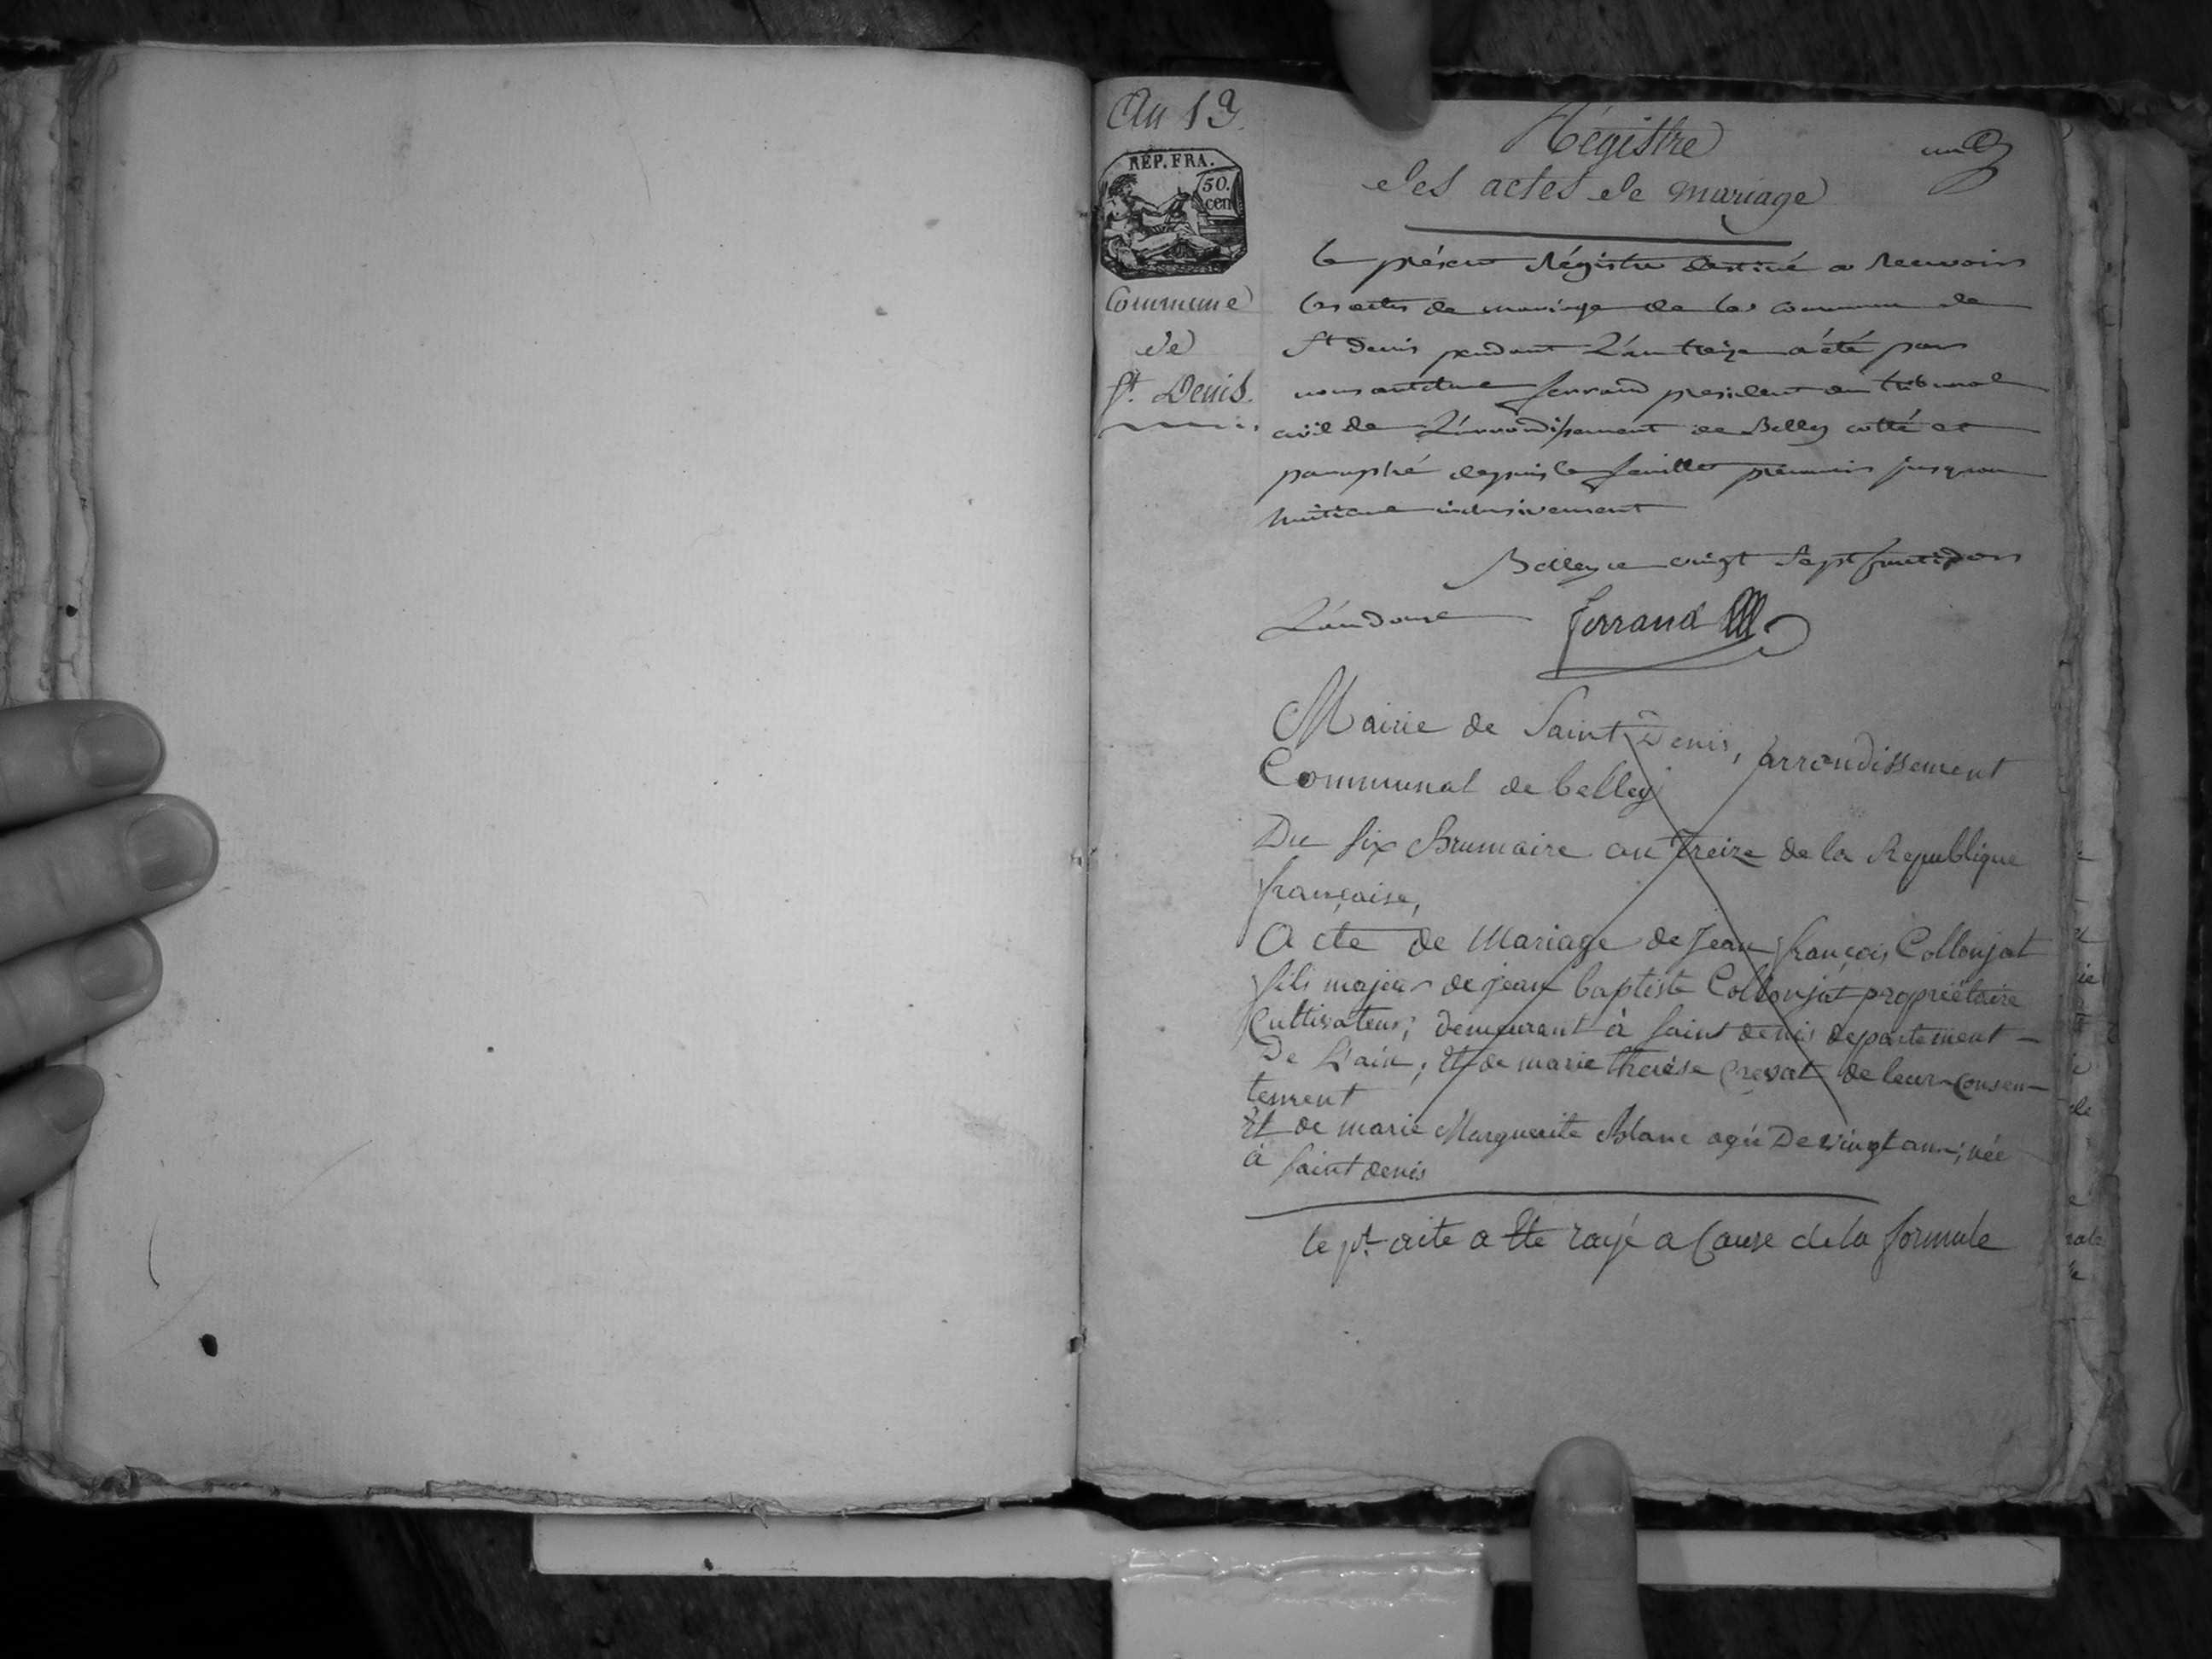 An 13
RÉP. FRA.
50.
cen
Commune
de
St. Denis.
un
Régistre
des actes de mariage
le présent Régistre destiné a Recevoir
les actes de mariage de la commune de
St Denis pendant L'an treize a été par
nous anthelme ferrand president du tribunal
civil de L'arrondissement de Belley cotté et
paraphé depuis le feuillet premier jusqu'au
huitieme inclusivement
Belley ce vingt Sept fructidor
L'an douze ferrand
Mairie de Saint Denis, arrondissement
Communal de belley
Du six Brumaire an Treize de la Republique
française,
Acte de Mariage de Jean françois Collonjat
fils majeur de jean baptiste Collonjat propriétaire
Cultivateur, demeurant à saint denis departement
De L'ain, Et de marie therése Crevat de leur consen-
tement
Et de marie Marguerite Blanc agée De vingt ans, née
à saint denis
le pt. acte a Eté rayé a Cause de la formule